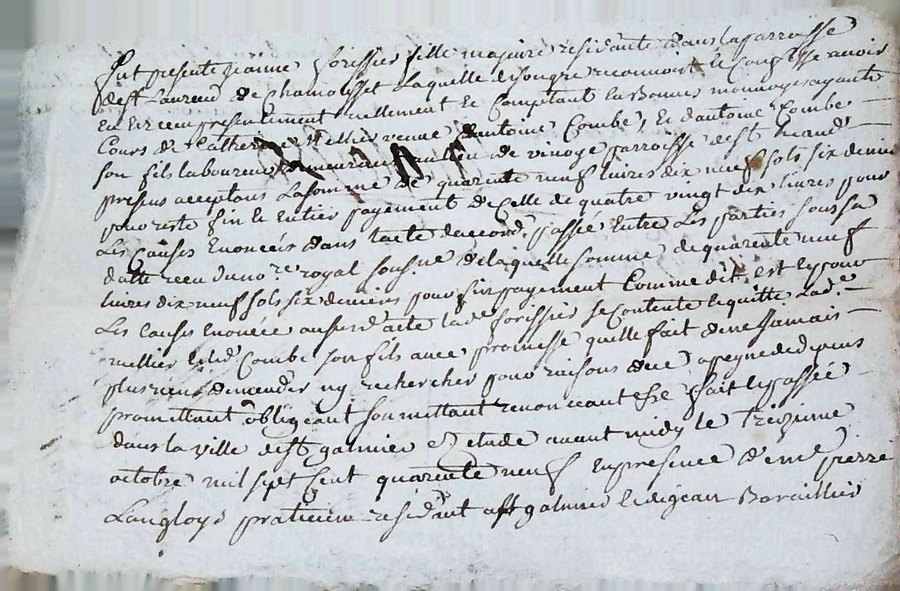 fut presente jeanne forissier fille majeure residante dans la parroisse
de st Laurend de Chamousset laquelle de son gre reconnoit et confesse avoir
eu et receu presentement reellement et comptant en bonnes monnoyes ayants
Cours de Catherine rellier veuve d'antoine Combe, et d'antoine Combe
son fils laboureur demeurants au lieu de vinoge parroisse de st
presens acceptans la somme de quarente neuf livres dix neuf sols six deniers
pour reste fin et entier payement de celle de quatre vingt dix livres pour
Les Causes enoncées dans lacte daccord passée entre les parties sous sa
datte receu du no.re royal sousne de laquelle somme de quarente neuf
livres dix neuf sols six deniers pour fin payement comme dit est et pour
Les causes enoncée aususd acte lade forissier se contente et quitte Lade
rellier et led Combe son fils avec promesse quelle fait de ne jamais
plus rien demender ny rechercher pour raisons de ce a peyne de depens
promettant obligeant soumettant renonceant &e fait et passée
dans la ville de st galmier etude avant midy le treizieme
octobre mil sept cent quarente neuf en presence de me pierre
Langloys praticien residant a st galmier et de jean Baraillier